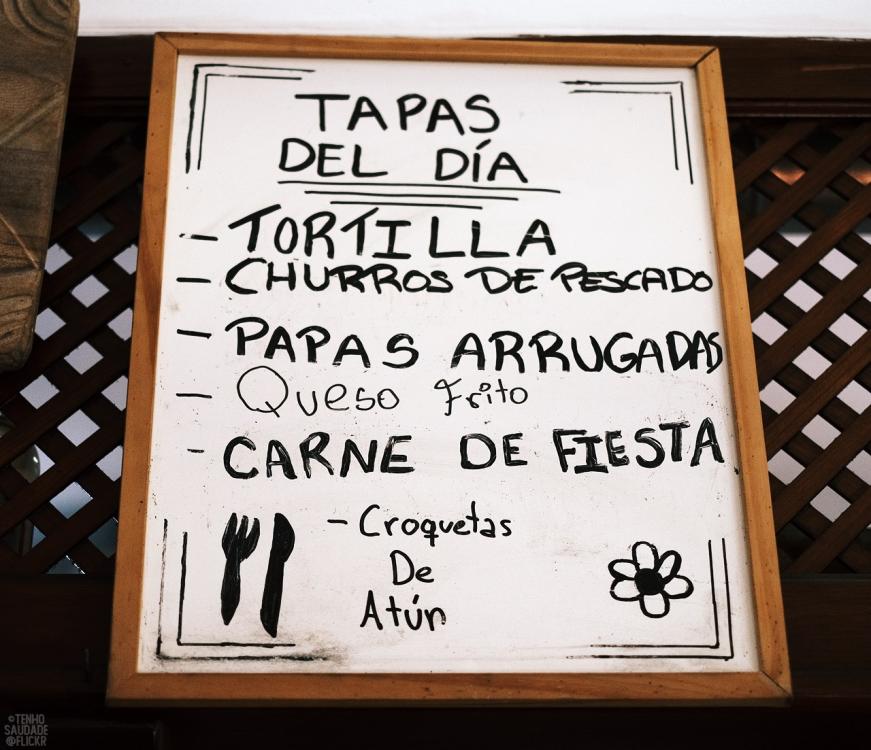 TAPAS
DEL DÍA
- TORTILLA
- CHURROS DE PESCADO
- PAPAS ARRUGADAS
- Queso frito
- CARNE DE FIESTA
- Croquetas
De
Atún
©TENHO
SAUDADE
@FLICKR